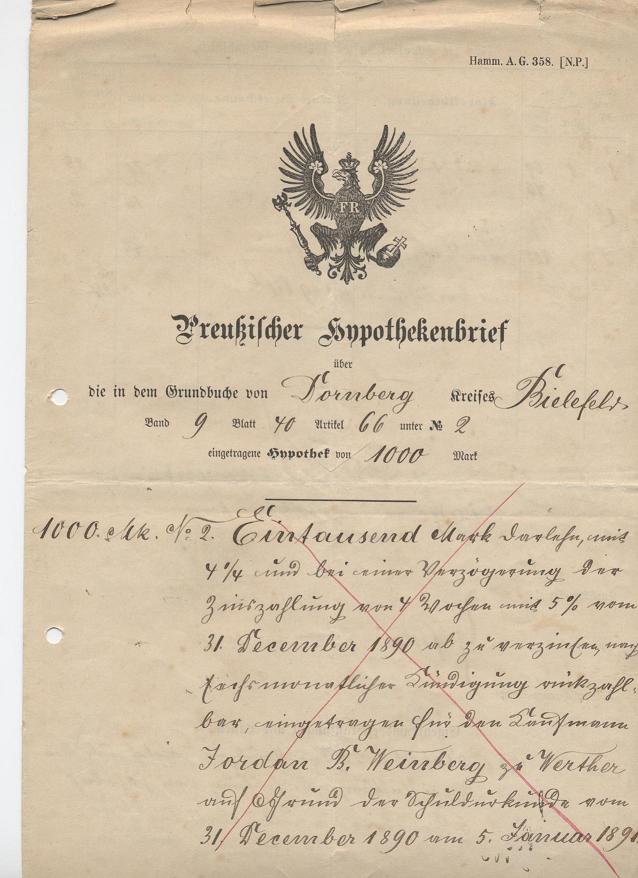 Hamm. A. G. 358. [N.P.]
FR
Preußischer Hypothekenbrief
über
die in dem Grundbuche von Dornberg Kreises Bielefeld
Band 9 Blatt 40 Artikel 66 unter № 2
eingetragene Hypothek von 1000 Mark
1000. Mk. No 2. Eintausend Mark Darlehn, mit
4 % und bei einer Verzögerung der
Zinszahlung von 4 Wochen mit 5 % vom
31. December 1890 ab zu verzinsen, nach
sechsmonatlicher Kündigung rückzahl-
bar, eingetragen für den Kaufmann
Jordan B. Weinberg zu Werther
auf Grund der Schuldurkunde vom
31. December 1890 am 5. Januar 1891.